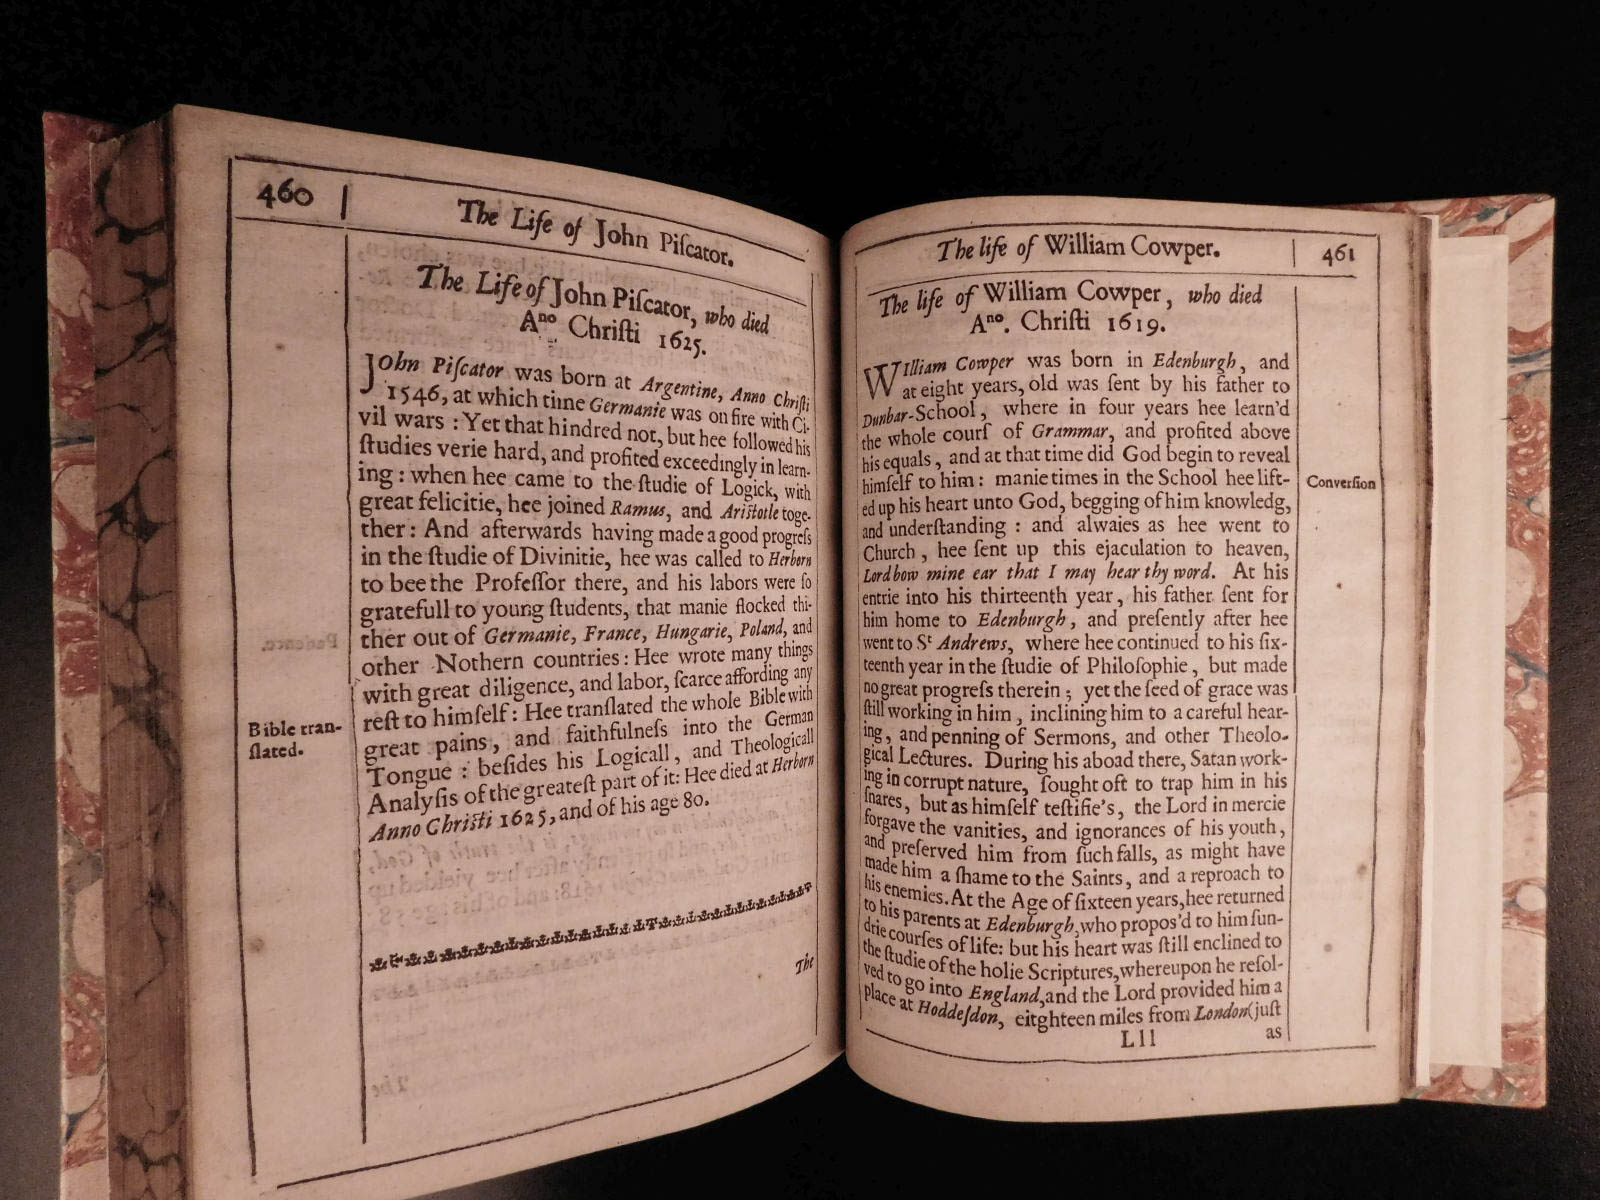 460
The Life of John Piſcator.
The Life of John Piſcator, who died
Aⁿᵒ Chriſti 1625.
JOhn Piſcator was born at Argentine, Anno Chriſti
1546, at which time Germanie was on fire with Ci-
vil wars : Yet that hindred not, but hee followed his
ſtudies verie hard, and profited exceedingly in learn-
ing : when hee came to the ſtudie of Logick, with
great felicitie, hee joined Ramus, and Ariſtotle toge-
ther : And afterwards having made a good progreſs
in the ſtudie of Divinitie, hee was called to Herborn
to bee the Profeſſor there, and his labors were ſo
gratefull to young ſtudents, that manie flocked thi-
ther out of Germanie, France, Hungarie, Poland, and
other Nothern countries : Hee wrote many things
with great diligence, and labor, ſcarce affording any
reſt to himſelf : Hee tranſlated the whole Bible with
great pains, and faithfulneſs into the German
Tongue : beſides his Logicall, and Theologicall
Analyſis of the greateſt part of it: Hee died at Herborn
Anno Chriſti 1625, and of his age 80.
Bible tran-
ſlated.
The
The life of William Cowper.
461
The life of William Cowper, who died
Aⁿᵒ. Chriſti 1619.
WIlliam Cowper was born in Edenburgh, and
at eight years, old was ſent by his father to
Dunbar-School, where in four years hee learn'd
the whole courſ of Grammar, and profited above
his equals, and at that time did God begin to reveal
himſelf to him : manie times in the School hee lift-
ed up his heart unto God, begging of him knowledg,
and underſtanding : and alwaies as hee went to
Church, hee ſent up this ejaculation to heaven,
Lord bow mine ear that I may hear thy word. At his
entrie into his thirteenth year, his father ſent for
him home to Edenburgh, and preſently after hee
went to Sᵗ Andrews, where hee continued to his ſix-
teenth year in the ſtudie of Philoſophie, but made
no great progreſs therein ; yet the ſeed of grace was
ſtill working in him, inclining him to a careful hear-
ing, and penning of Sermons, and other Theolo-
gical Lectures. During his aboad there, Satan work-
ing in corrupt nature, ſought oft to trap him in his
ſnares, but as himſelf teſtifie's, the Lord in mercie
forgave the vanities, and ignorances of his youth,
and preſerved him from ſuch falls, as might have
made him a ſhame to the Saints, and a reproach to
his enemies. At the Age of ſixteen years, hee returned
to his parents at Edenburgh, who propos'd to him ſun-
drie courſes of life: but his heart was ſtill enclined to
the ſtudie of the holie Scriptures, whereupon he reſol-
ved to go into England, and the Lord provided him a
place at Hoddeſdon, eitghteen miles from London (juſt
Lll
as
Converſion